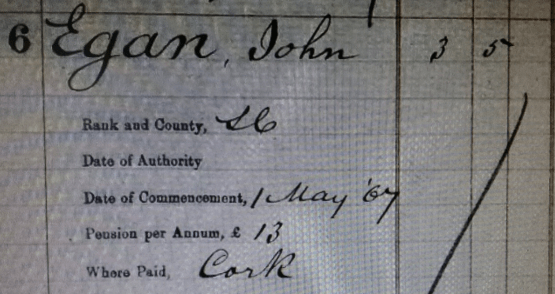 6 Egan, John 3 5
Rank and County, SC
Date of Authority
Date of Commencement, 1 May '67
Pension per Annum, £ 13
Where Paid, Cork